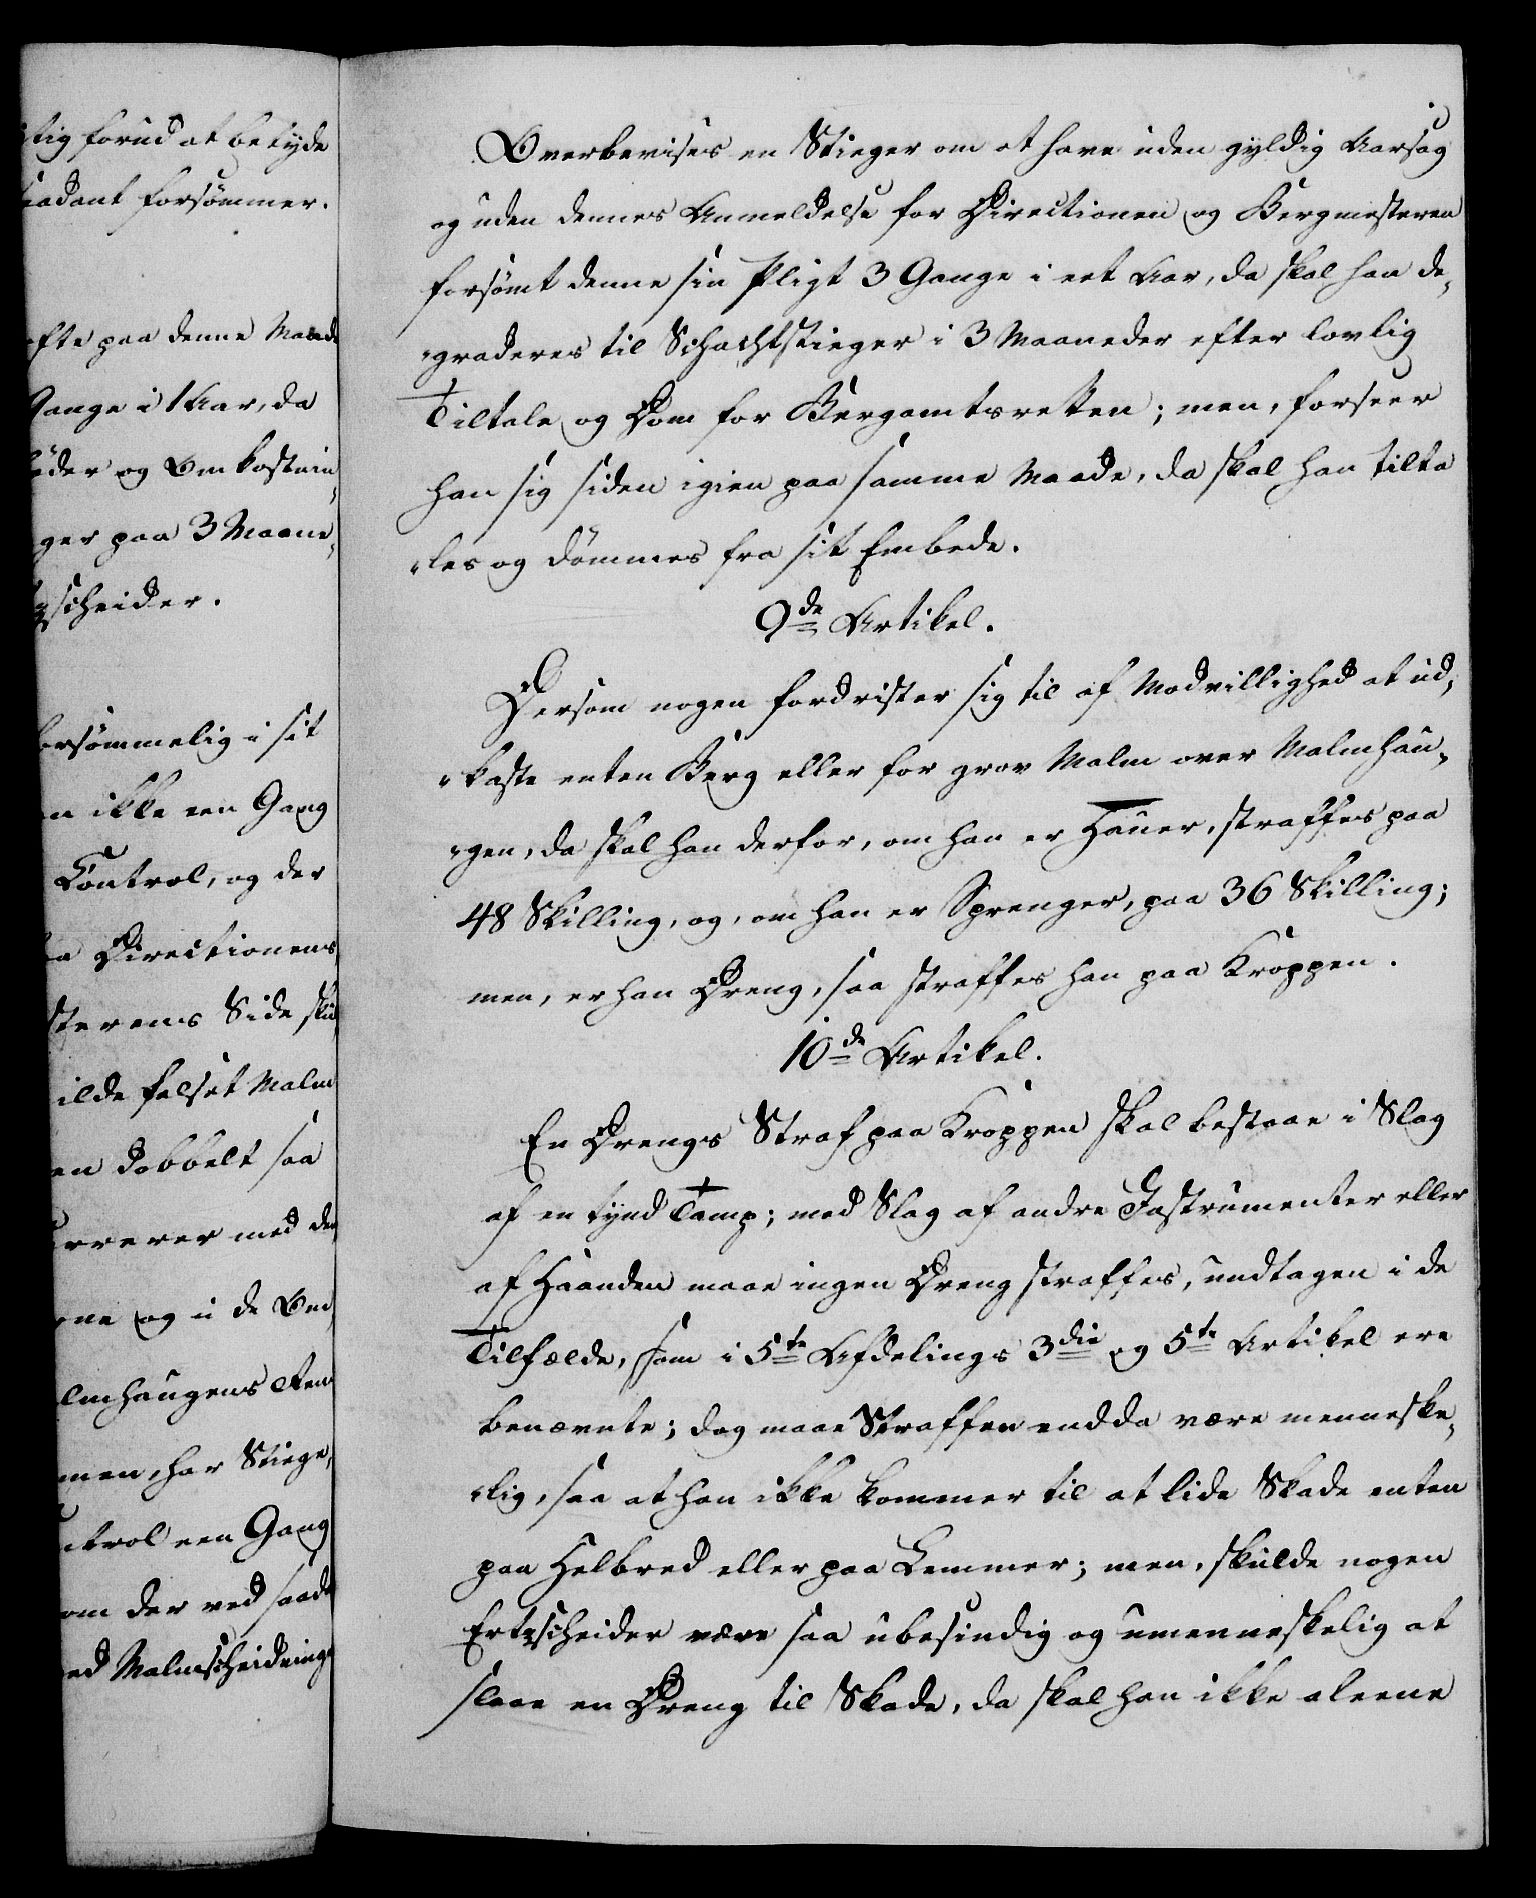 tig forud at betyde
saadant forsömmer.
ofte paa denne Maade
Gange i 1 Aar, da
öder og Omkostnin„
ger paa 3 Maane„
tzscheider.
forsömmelig i sit
n ikke een Gang
Control, og der
a Directionens
sterens Side sku
ilde falset Malm
en dobbelt saa
urerer med den
ne og i de Om
lmhaugens Ren
men, har Stiege„
ntrol een Gang
om der ved saada
ed Malmscheidnings
Overbevises en Stieger om at have uden gyldig Aarsag
og uden dennes Anmeldelse for Directionen og Bergmesteren
forsömt denne sin Pligt 3 Gange i eet Aar, da skal han de„
„graderes til Schachtstieger i 3 Maaneder efter lovlig
Tiltale og Dom for Bergamtsretten; men, forseer
han sig siden igien paa samme Maade, da skal han tilta
„les og dömmes fra sit Embede.
9de Artikel.
Dersom nogen fordrister sig til af Modvillighed at ud„
„kaste enten Berg eller for grov Malm over Malmhau„
„gen, da skal han derfor, om han er Hauer, straffes paa
48 Skilling, og, om han er Sprenger, paa 36 Skilling;
men, er han Dreng, saa straffes han paa Kroppen.
10de Artikel.
En Drengs Straf paa Kroppen skal bestaae i Slag
af en tynd Tamp; med Slag af andre Instrumenter eller
af Haanden maae ingen Dreng straffes, undtagen i de
Tilfælde, som i 5te Afdelings 3die og 5te Artikel ere
benævnte; dog maae Straffen endda være menneske„
„lig, saa at han ikke kommer til at lide Skade enten
paa Helbred eller paa Lemmer; men, skulde nogen
Ertzscheider være saa ubesindig og umenneskelig at
slaae en Dreng til Skade, da skal han ikke aleene